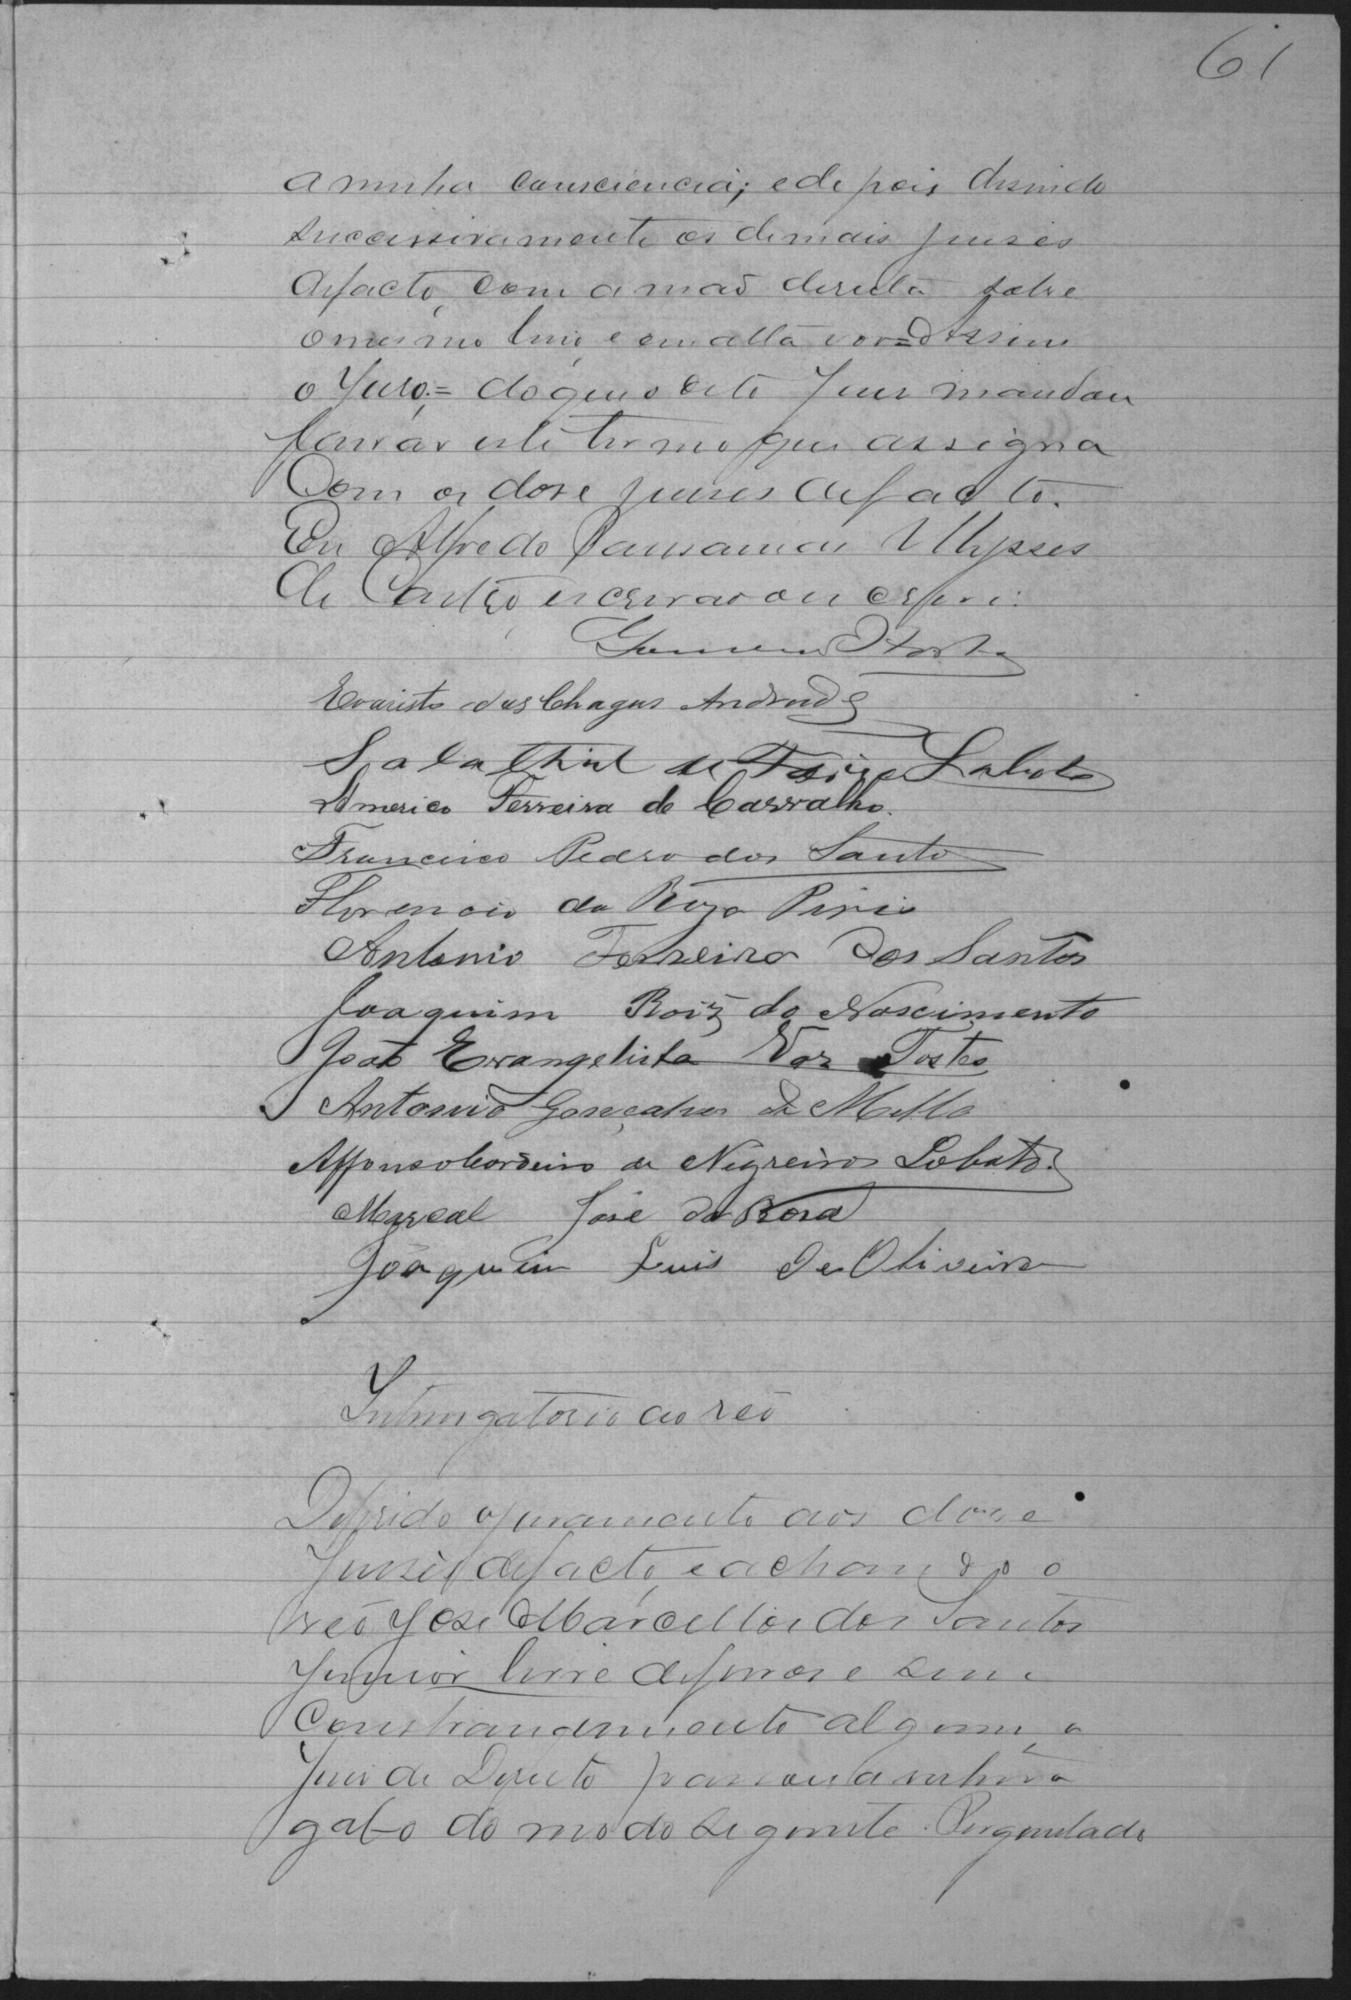 61
a minha consciencia; e depois disindo
successivamente os demais juises
de facto, com a maõ direita sobre
o mesmo livro e em alta vos = Assim
o Juro; = do que o dito Juis mandou
lavrar este termo que assigna
Com os dose juises de facto.
Eu Alfredo Pausanias Ulysses
de Castro, escrivaõ o escrevi.
Horta
Evaristo das Chagas Andrade
Salathiel de Faria Lobato
Americo Ferreira de Carvalho.
Francisco Pedro dos Santos
Florencio da Roza Piris
Antonio Ferreira dos Santos
Joaquim Roiz do Nascimento
Joaõ Evangelista Vaz Tostes
Antonio Gonçalves de Mello
Affonso Cordeiro de Negreiros Lobato.
Marcal José da Rosa
Joaquim Luis de Oliveira
Interrogatorio ao reõ
Deferido o juramento aos dose
Juises de facto, e achando-se o
reõ José Marcellos dos Santos
Junior livre de ferros e sem
Constrangimento algum, o
Juis de Direito passou a interro
gal-o do modo seguinte. Perguntado